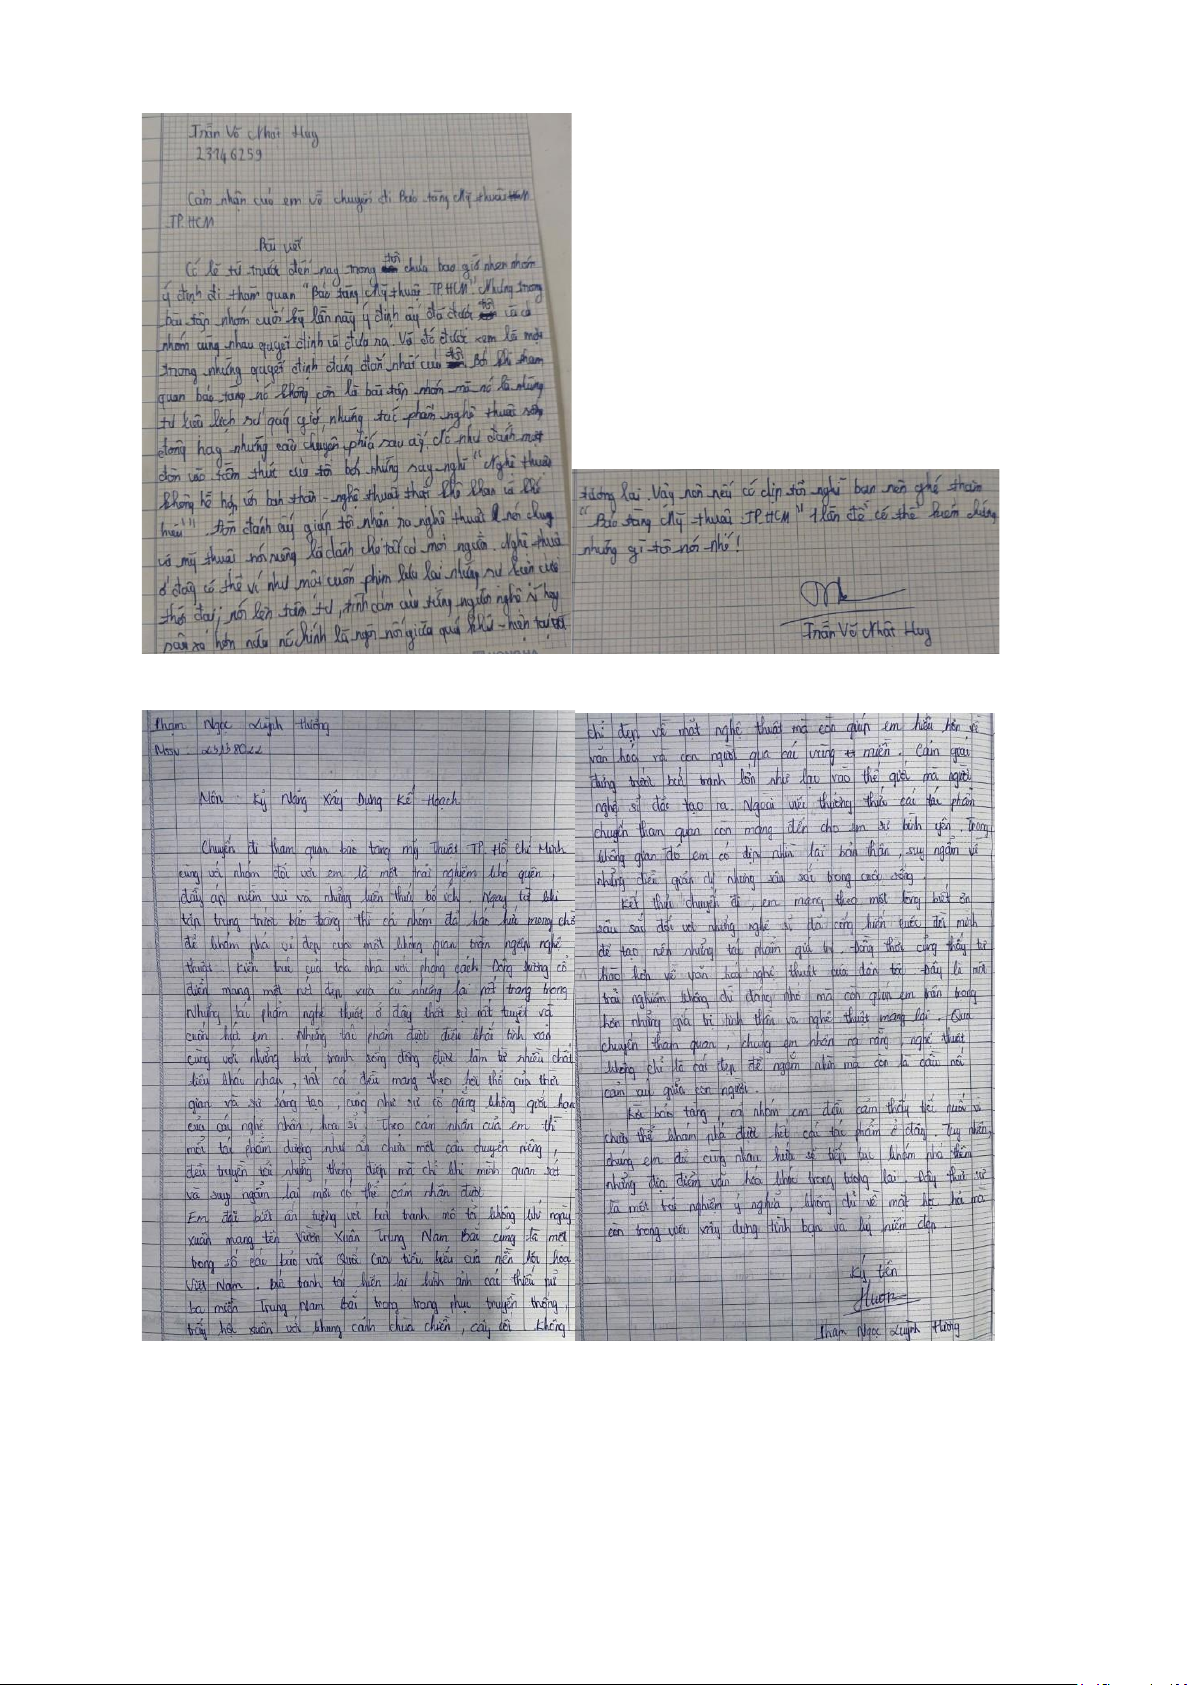 Trần Võ Nhật Huy
23146259
Cảm nhận của em về chuyến đi Bảo tàng Mỹ thuật
TP.HCM
Bài viết
Có lẽ từ trước đến nay trong tôi chưa bao giờ nhen nhóm
ý định đi tham quan "Bảo tàng Mỹ thuật TP.HCM" Nhưng trong
bài tập nhóm cuối kỳ lần này ý định ấy đã được tôi và cả
nhóm cùng nhau quyết định và đưa ra. Và đó được xem là một
trong những quyết định đúng đắn nhất của tôi Bởi khi tham
quan bảo tàng nó không còn là bài tập nhóm mà nó là những
tư liệu lịch sử quý giá, những tác phẩm nghệ thuật sống
động hay những câu chuyện phía sau ấy. Nó như đánh một
đòn vào tiềm thức của tôi bởi những suy nghĩ "Nghệ thuật
không hề hợp với bản thân - nghệ thuật thật khô khan và khó
hiểu". Đòn đánh ấy giúp tôi nhận ra nghệ thuật nói chung
và mỹ thuật nói riêng là dành cho tất cả mọi người. Nghệ thuật
ở đây có thể ví như một cuốn phim lưu lại những sự kiện của
thời đại; nói lên tâm tư, tình cảm của từng người nghệ sĩ hay
sâu xa hơn nữa nó chính là ngôn nói giữa quá khứ - hiện tại
tương lai. Vậy nên nếu có dịp tôi nghĩ bạn nên ghé thăm
"Bảo tàng Mỹ thuật TP.HCM" 1 lần để có thể kiểm chứng
những gì tôi nói nhé!
Trần Võ Nhật Huy
Phạm Ngọc Quỳnh Hương
Mssv: 23138022
Môn: Kỹ Năng Xây Dựng Kế Hoạch
Chuyến đi tham quan bảo tàng mỹ thuật TP. Hồ Chí Minh
cùng với nhóm đối với em là một trải nghiệm khó quên,
đầy ắp niềm vui và những kiến thức bổ ích. Ngay từ khi
tập trung trước bảo tàng thì cả nhóm đã háo hức mong chờ
để khám phá vẻ đẹp của một không gian tràn ngập nghệ
thuật. Kiến trúc của tòa nhà với phong cách Đông Dương cổ
điển mang một nét đẹp xưa cũ nhưng lại rất trang trọng
Những tác phẩm nghệ thuật ở đây thật sự rất tuyệt và
cuốn hút em. Những tác phẩm được điêu khắc tinh xảo
cùng với những bức tranh sống động được làm từ nhiều chất
liệu khác nhau, tất cả đều mang theo hơi thở của thời
gian và sự sáng tạo, cũng như sự cố gắng không giới hạn
của các nghệ nhân, họa sĩ. Theo cảm nhận của em thì
mỗi tác phẩm dường như ẩn chứa một câu chuyện riêng,
đều truyền tải những thông điệp mà chỉ khi mình quan sát
và suy ngẫm lại mới có thể cảm nhận được
Em đặc biệt ấn tượng với bức tranh mô tả không khí ngày
xuân mang tên Vườn Xuân Trung Nam Bắc cũng là một
trong số các bảo vật Quốc Gia tiêu biểu của nền hội họa
Việt Nam. Bức tranh tái hiện lại hình ảnh các thiếu nữ
ba miền Trung Nam Bắc trong trang phục truyền thống,
trẩy hội xuân với khung cảnh chùa chiền, cây cối. Không
chỉ đẹp về mặt nghệ thuật mà còn giúp em hiểu hơn về
văn hóa và con người qua các vùng miền. Cảm giác
đứng trước bức tranh lớn như lạc vào thế giới mà người
nghệ sĩ đã tạo ra. Ngoài việc thưởng thức các tác phẩm
chuyến tham quan còn mang đến cho em sự bình yên. Trong
không gian đó em có dịp nhìn lại bản thân, suy ngẫm về
những điều giản dị nhưng sâu sắc trong cuộc sống.
Kết thúc chuyến đi, em mang theo một lòng biết ơn
sâu sắc đối với những nghệ sĩ đã cống hiến cuộc đời mình
để tạo nên những tác phẩm giá trị. Đồng thời cũng thấy tự
hào hơn về văn hoá nghệ thuật của dân tộc. Đây là một
trải nghiệm không chỉ đáng nhớ mà còn giúp em trân trọng
hơn những giá trị tinh thần và nghệ thuật mang lại. Qua
chuyến tham quan, chúng em nhận ra rằng, nghệ thuật
không chỉ là cái đẹp để ngắm nhìn mà còn là cầu nối
cảm xúc giữa con người.
Rời bảo tàng, cả nhóm em đều cảm thấy tiếc nuối vì
chưa thể khám phá được hết các tác phẩm ở đây. Tuy nhiên,
chúng em đã cùng nhau hứa sẽ tiếp tục khám phá thêm
những địa điểm văn hóa khác trong tương lai. Đây thực sự
là một trải nghiệm ý nghĩa, không chỉ về mặt học hỏi mà
còn trong việc xây dựng tình bạn và kỷ niệm đẹp.
Ký tên
Hương
Phạm Ngọc Quỳnh Hương